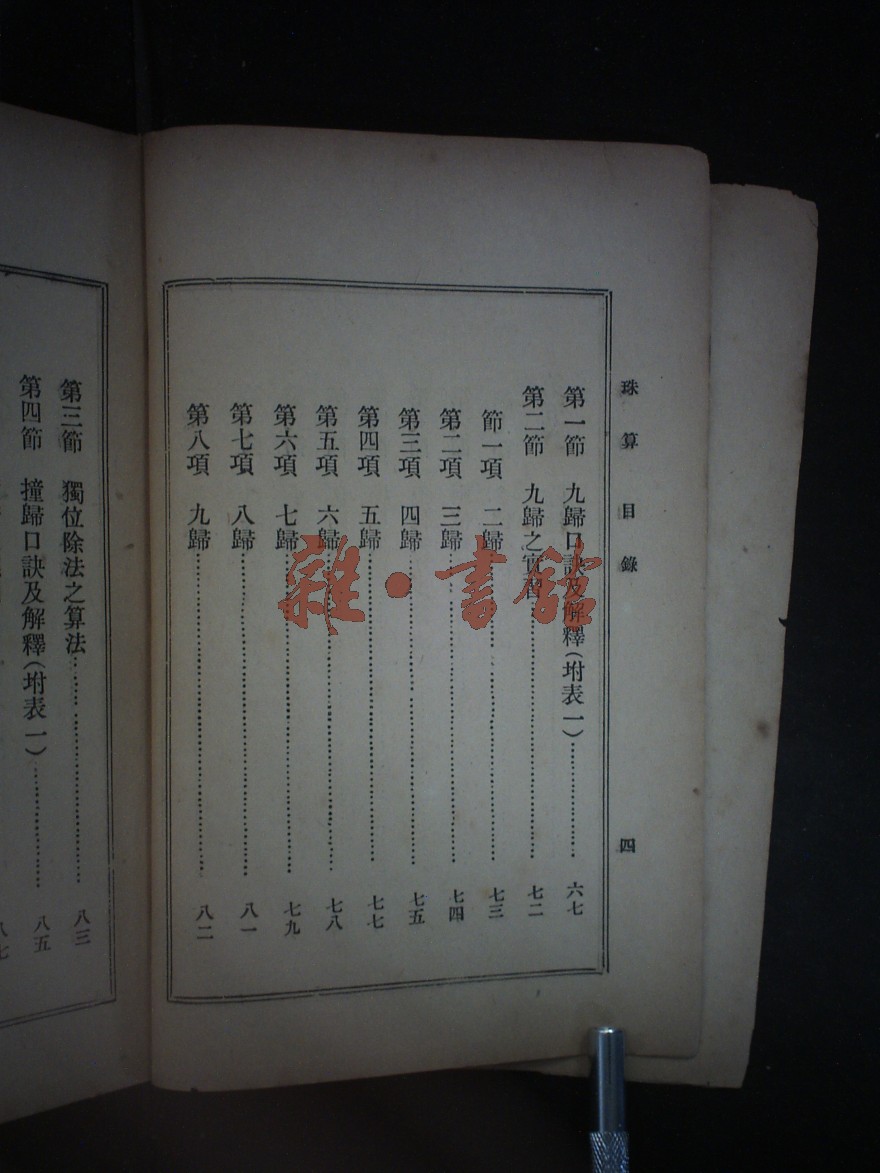 珠算目錄
四
第一節 九歸口訣及解釋(坿表一)……六七
第二節 九歸之實習……七二
節一項 二歸……七三
第二項 三歸……七四
第三項 四歸……七五
第四項 五歸……七七
第五項 六歸……七八
第六項 七歸……七九
第七項 八歸……八一
第八項 九歸……八二
第三節 獨位除法之算法……八三
第四節 撞歸口訣及解釋(坿表一)……八五
雜·書館